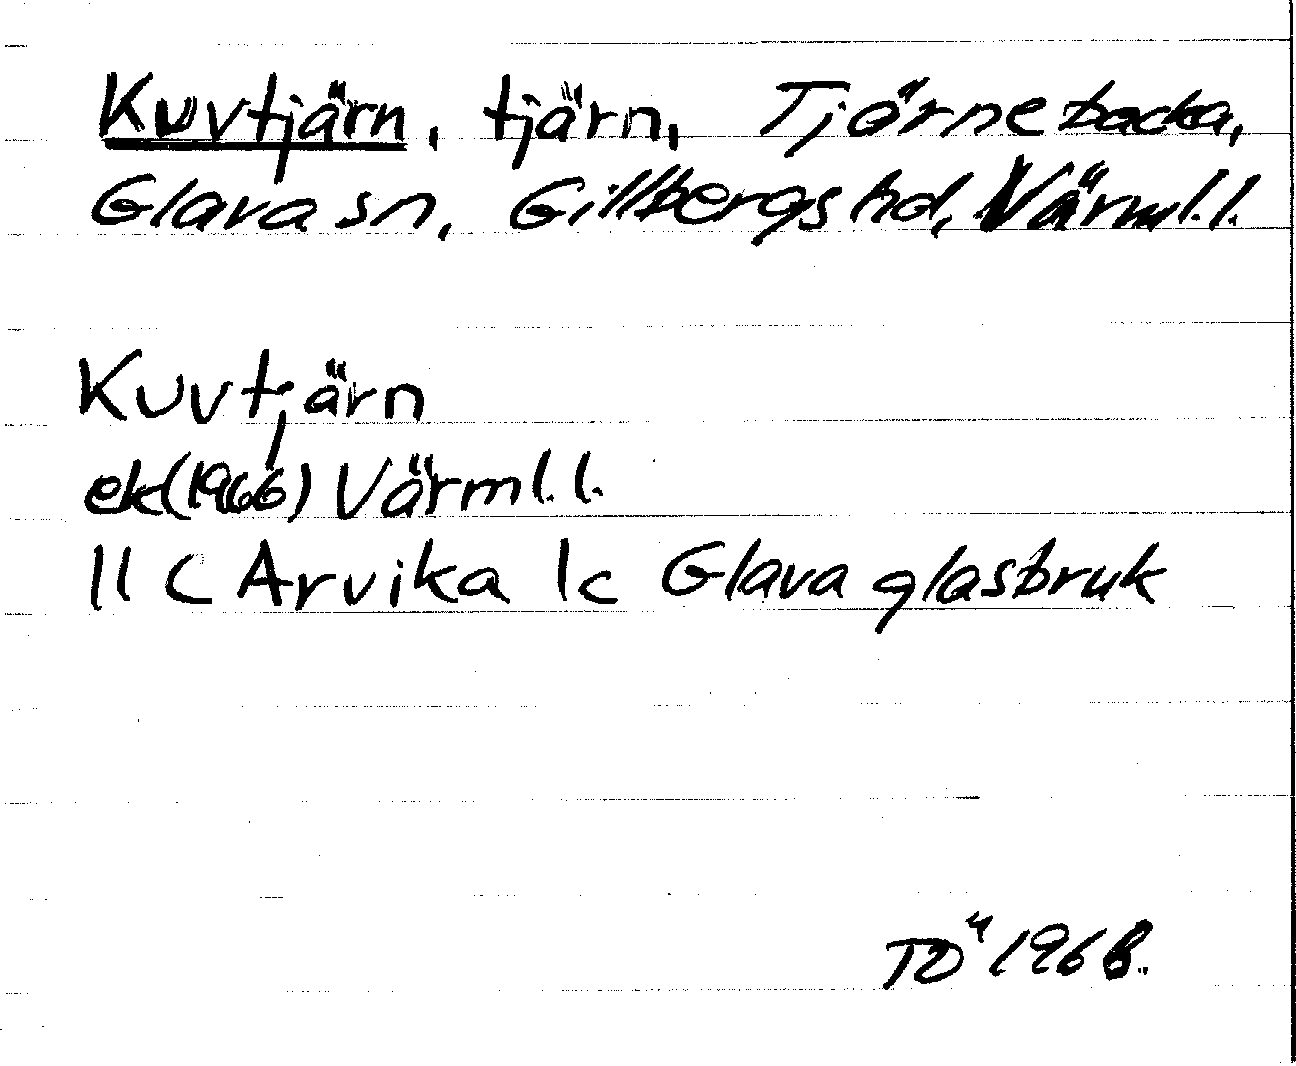 Kuvtjärn, tjärn, Tjärnebacka,
Glava sn, Gillbergs hd, Värml. l.
Kuvtjärn
ek (1966) Värml. l.
11 C Arvika 1c Glava glasbruk
TÖ 1968.